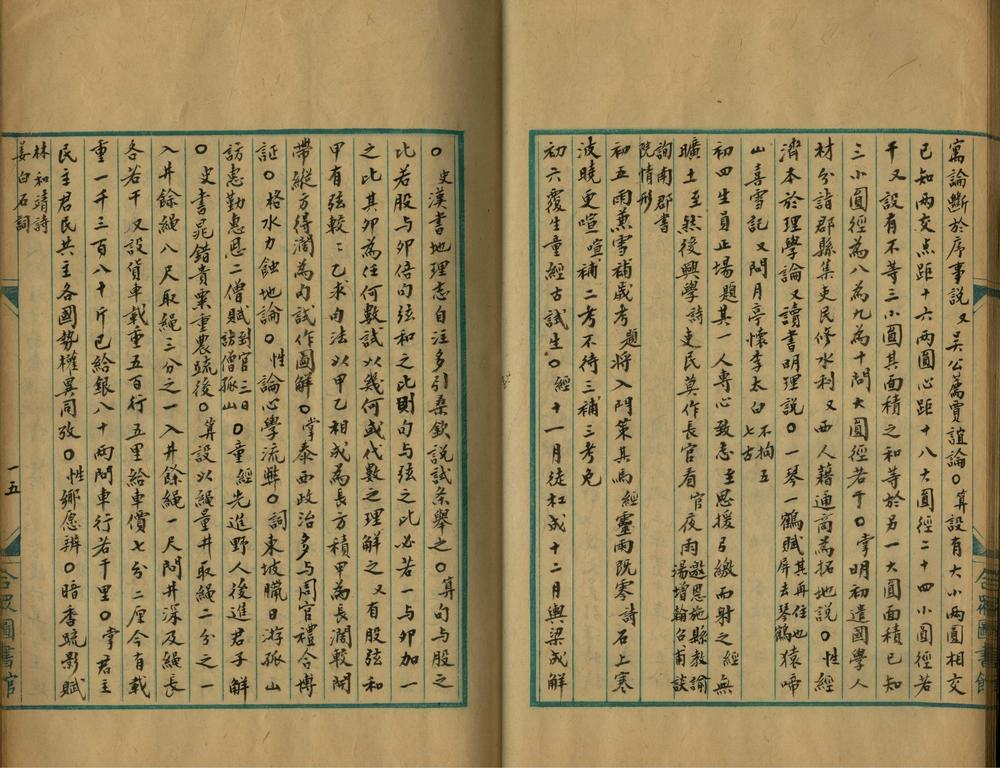 寓論斷於序事說又吳公薦賈誼論○算設有大小兩圓相交
已知兩交点距十六兩圓心距十八大圓徑二十四小圓徑若
干又設有不等三小圓其面積之和等於另一大圓面積已知
三小圓徑為八為九為十問大圓徑若干○掌明初遣國學人
材分詣郡縣集吏民修水利又西人藉通商為拓地說○性經
濟本於理學論又讀書明理說○一琴一鶴賦其再任也屏去琴鶴猿啼
山喜雪記又問月亭懷李太白不拘五七古
初四生員正場題其一人專心致志至思援弓繳而射之經無
曠土至然後興學詩吏民莫作長官看官夜雨邀恩施縣教諭湯增翰召甫談
詢南郡書院情形
初五雨兼雪補歲考題將入門策其馬經靈雨既零詩石上寒
波曉更喧喧補二考不待三補三考免
初六覆生童經古試生○經十一月徒杠成十二月輿梁成解
○史漢書地理志自注多引桑欽說試条舉之○算句与股之
比若股与卯倍句弦和之比則句与弦之比必若一与卯加一
之比其卯為任何數試以幾何或代數之理解之又有股弦和
甲有弦較乙求句法以甲乙相成為長方積甲為長濶較開
帶縱方得濶為句試作圖解○掌泰西政治多与周官禮合博
証○格水力蝕地論○性論心學流弊○詞東坡臘日游孤山
訪惠勤惠恩二僧賦到官三日訪僧孤山○童經先進野人後進君子解
○史書晁錯貴粟重農疏後○算設以繩量井取繩二分之一
入井餘繩八尺取繩三分之一入井餘繩一尺問井深及繩長
各若干又設貨車載重五百行五里給車價七分二厘今有載
重一千三百八十斤已給銀八十兩問車行若干里○掌君主
民主君民共主各國勢權異同攷○性鄉愿辨○暗香疏影賦
林和靖詩
姜白石詞
一五
合眾圖書館
合眾圖書館